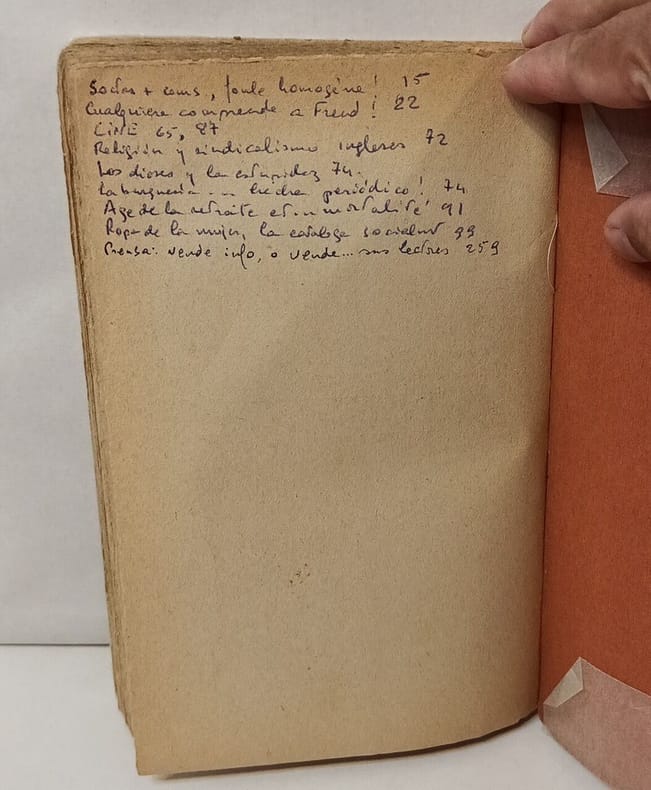 Socdos + coms, foule homogène! 15
Cualquiera comprende a Freud! 22
CINE 65, 87
Religión y sindicalismo ingleses 72
Los dioses y la estupidez 74.
La burguesía periódico! 74
Age de la retraite et mortalité 91
Ropa de la mujer, la cataloga 99
Prensa: vende info, o vende... sus lectores 259